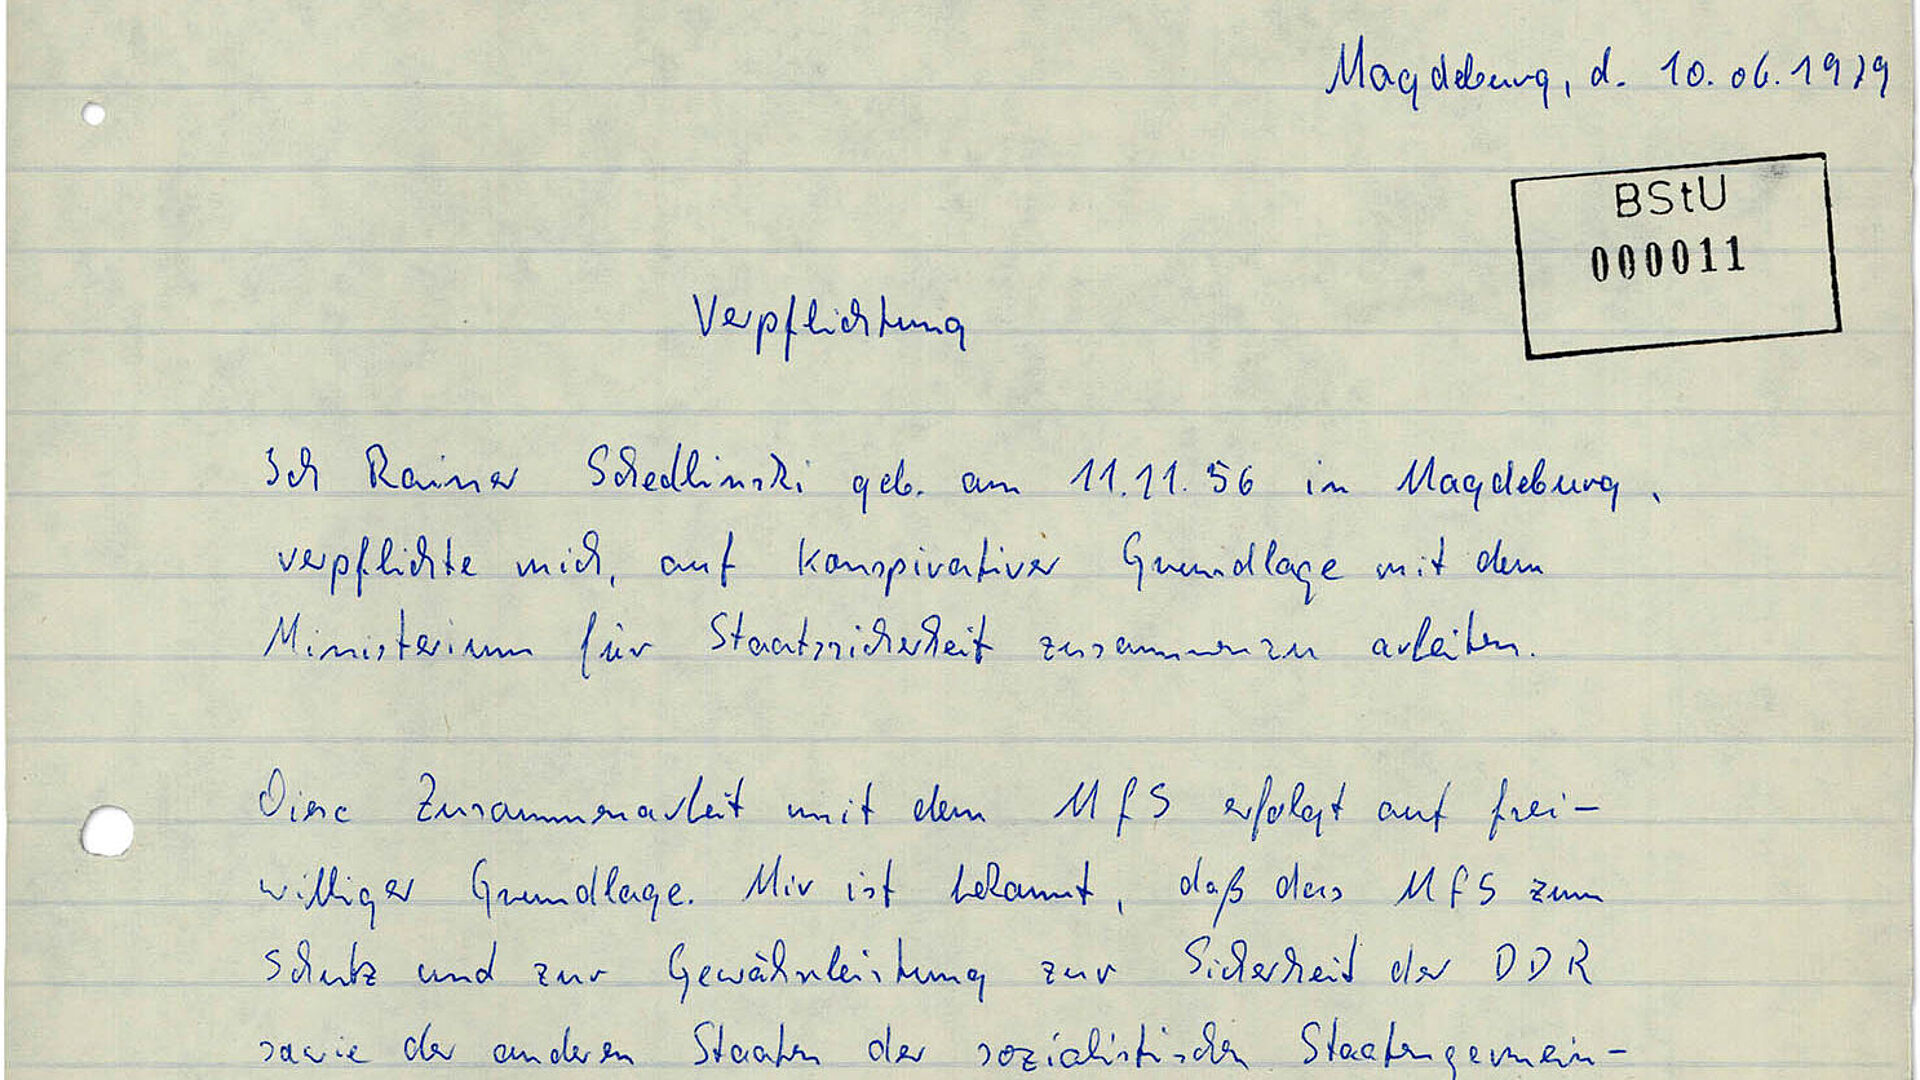 Magdeburg, d. 10.06.1979
BStU
000011
Verpflichtung
Ich Rainer Schedlinski geb. am 11.11.56 in Magdeburg,
verpflichte mich, auf konspirativer Grundlage mit dem
Ministerium für Staatssicherheit zusammenzu arbeiten.
Diese Zusammenarbeit mit dem MfS erfolgt auf frei-
williger Grundlage. Mir ist bekannt, daß das MfS zum
Schutz und zur Gewährleistung zur Sicherheit der DDR
sowie der anderen Staaten der sozialistischen Staatengemein-